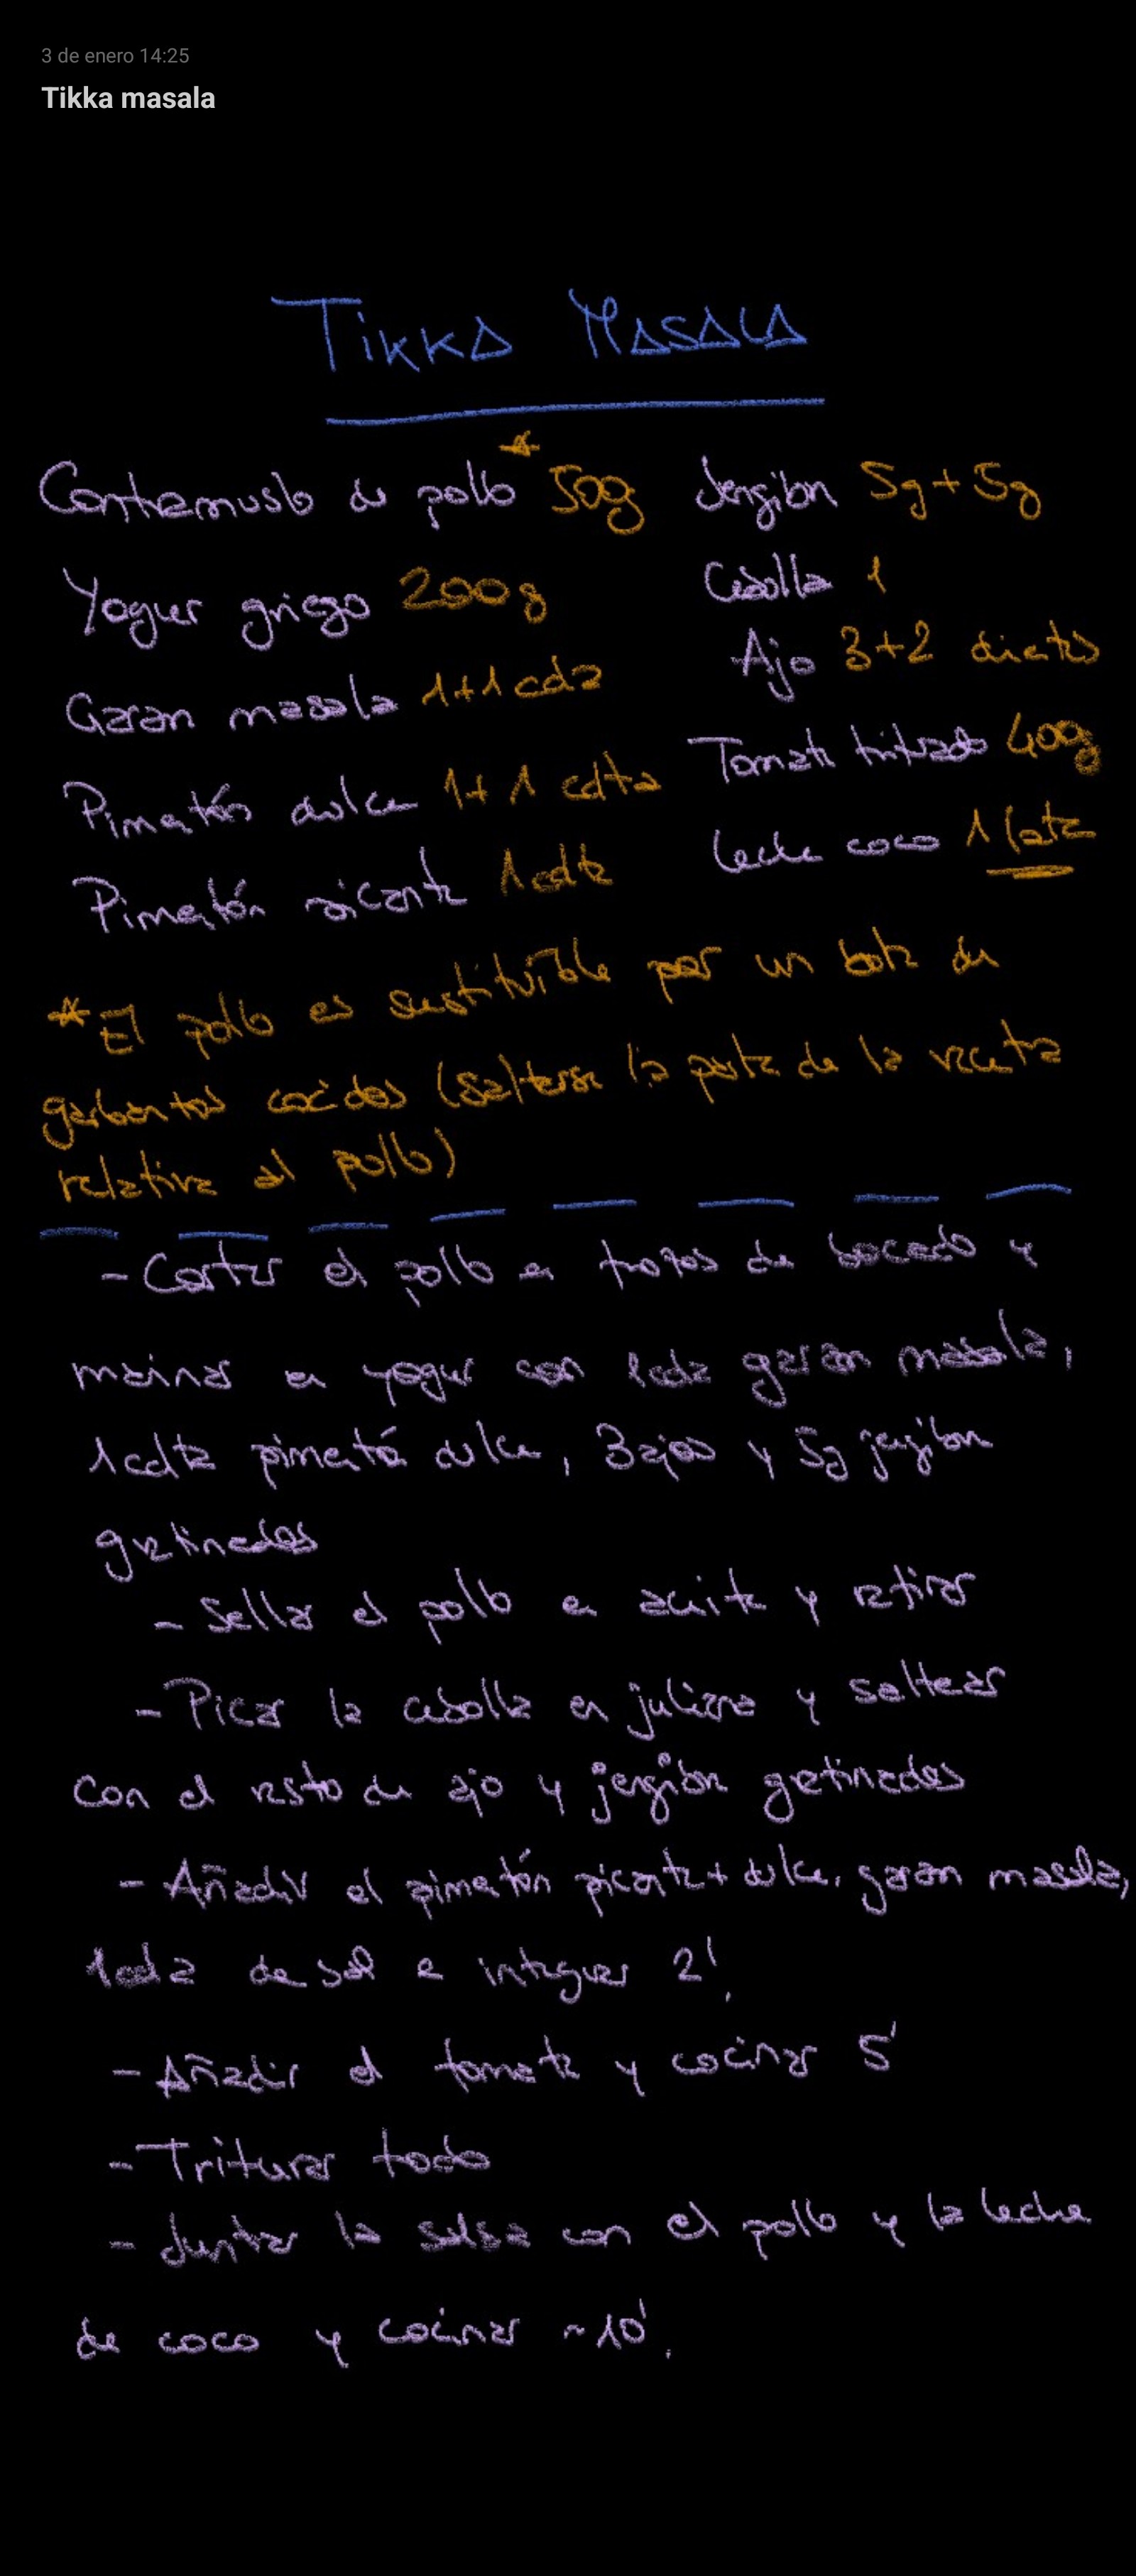 3 de enero 14:25
Tikka masala
TIKKA MASALA
Contramuslo de pollo * 500g
Yogur griego 200g
Garan masala 1+1 cda
Pimentón dulce 1+1 cdta
Pimentón picante 1 cdta
Jengibre 5g+5g
Cebolla 1
Ajo 3+2 dientes
Tomate triturado 400g
Leche coco 1 lata
* El pollo es sustituible por un bote de
garbanzos cocidos (saltarse la parte de la receta
relativa al pollo)
- Cortar el pollo en trozos de bocado y
marinar en yogur con 1cda garan masala,
1cdta pimentón dulce, 3 ajos y 5g jengibre
gratinados
- Sellar el pollo en aceite y retirar
- Picar la cebolla en juliana y saltear
con el resto de ajo y jengibre gratinados
- Añadir el pimentón picante + dulce, garan masala,
1cda de sal e integrar 2'.
- Añadir el tomate y cocinar 5'
- Triturar todo
- Juntar la salsa con el pollo y la leche
de coco y cocinar ~10'.